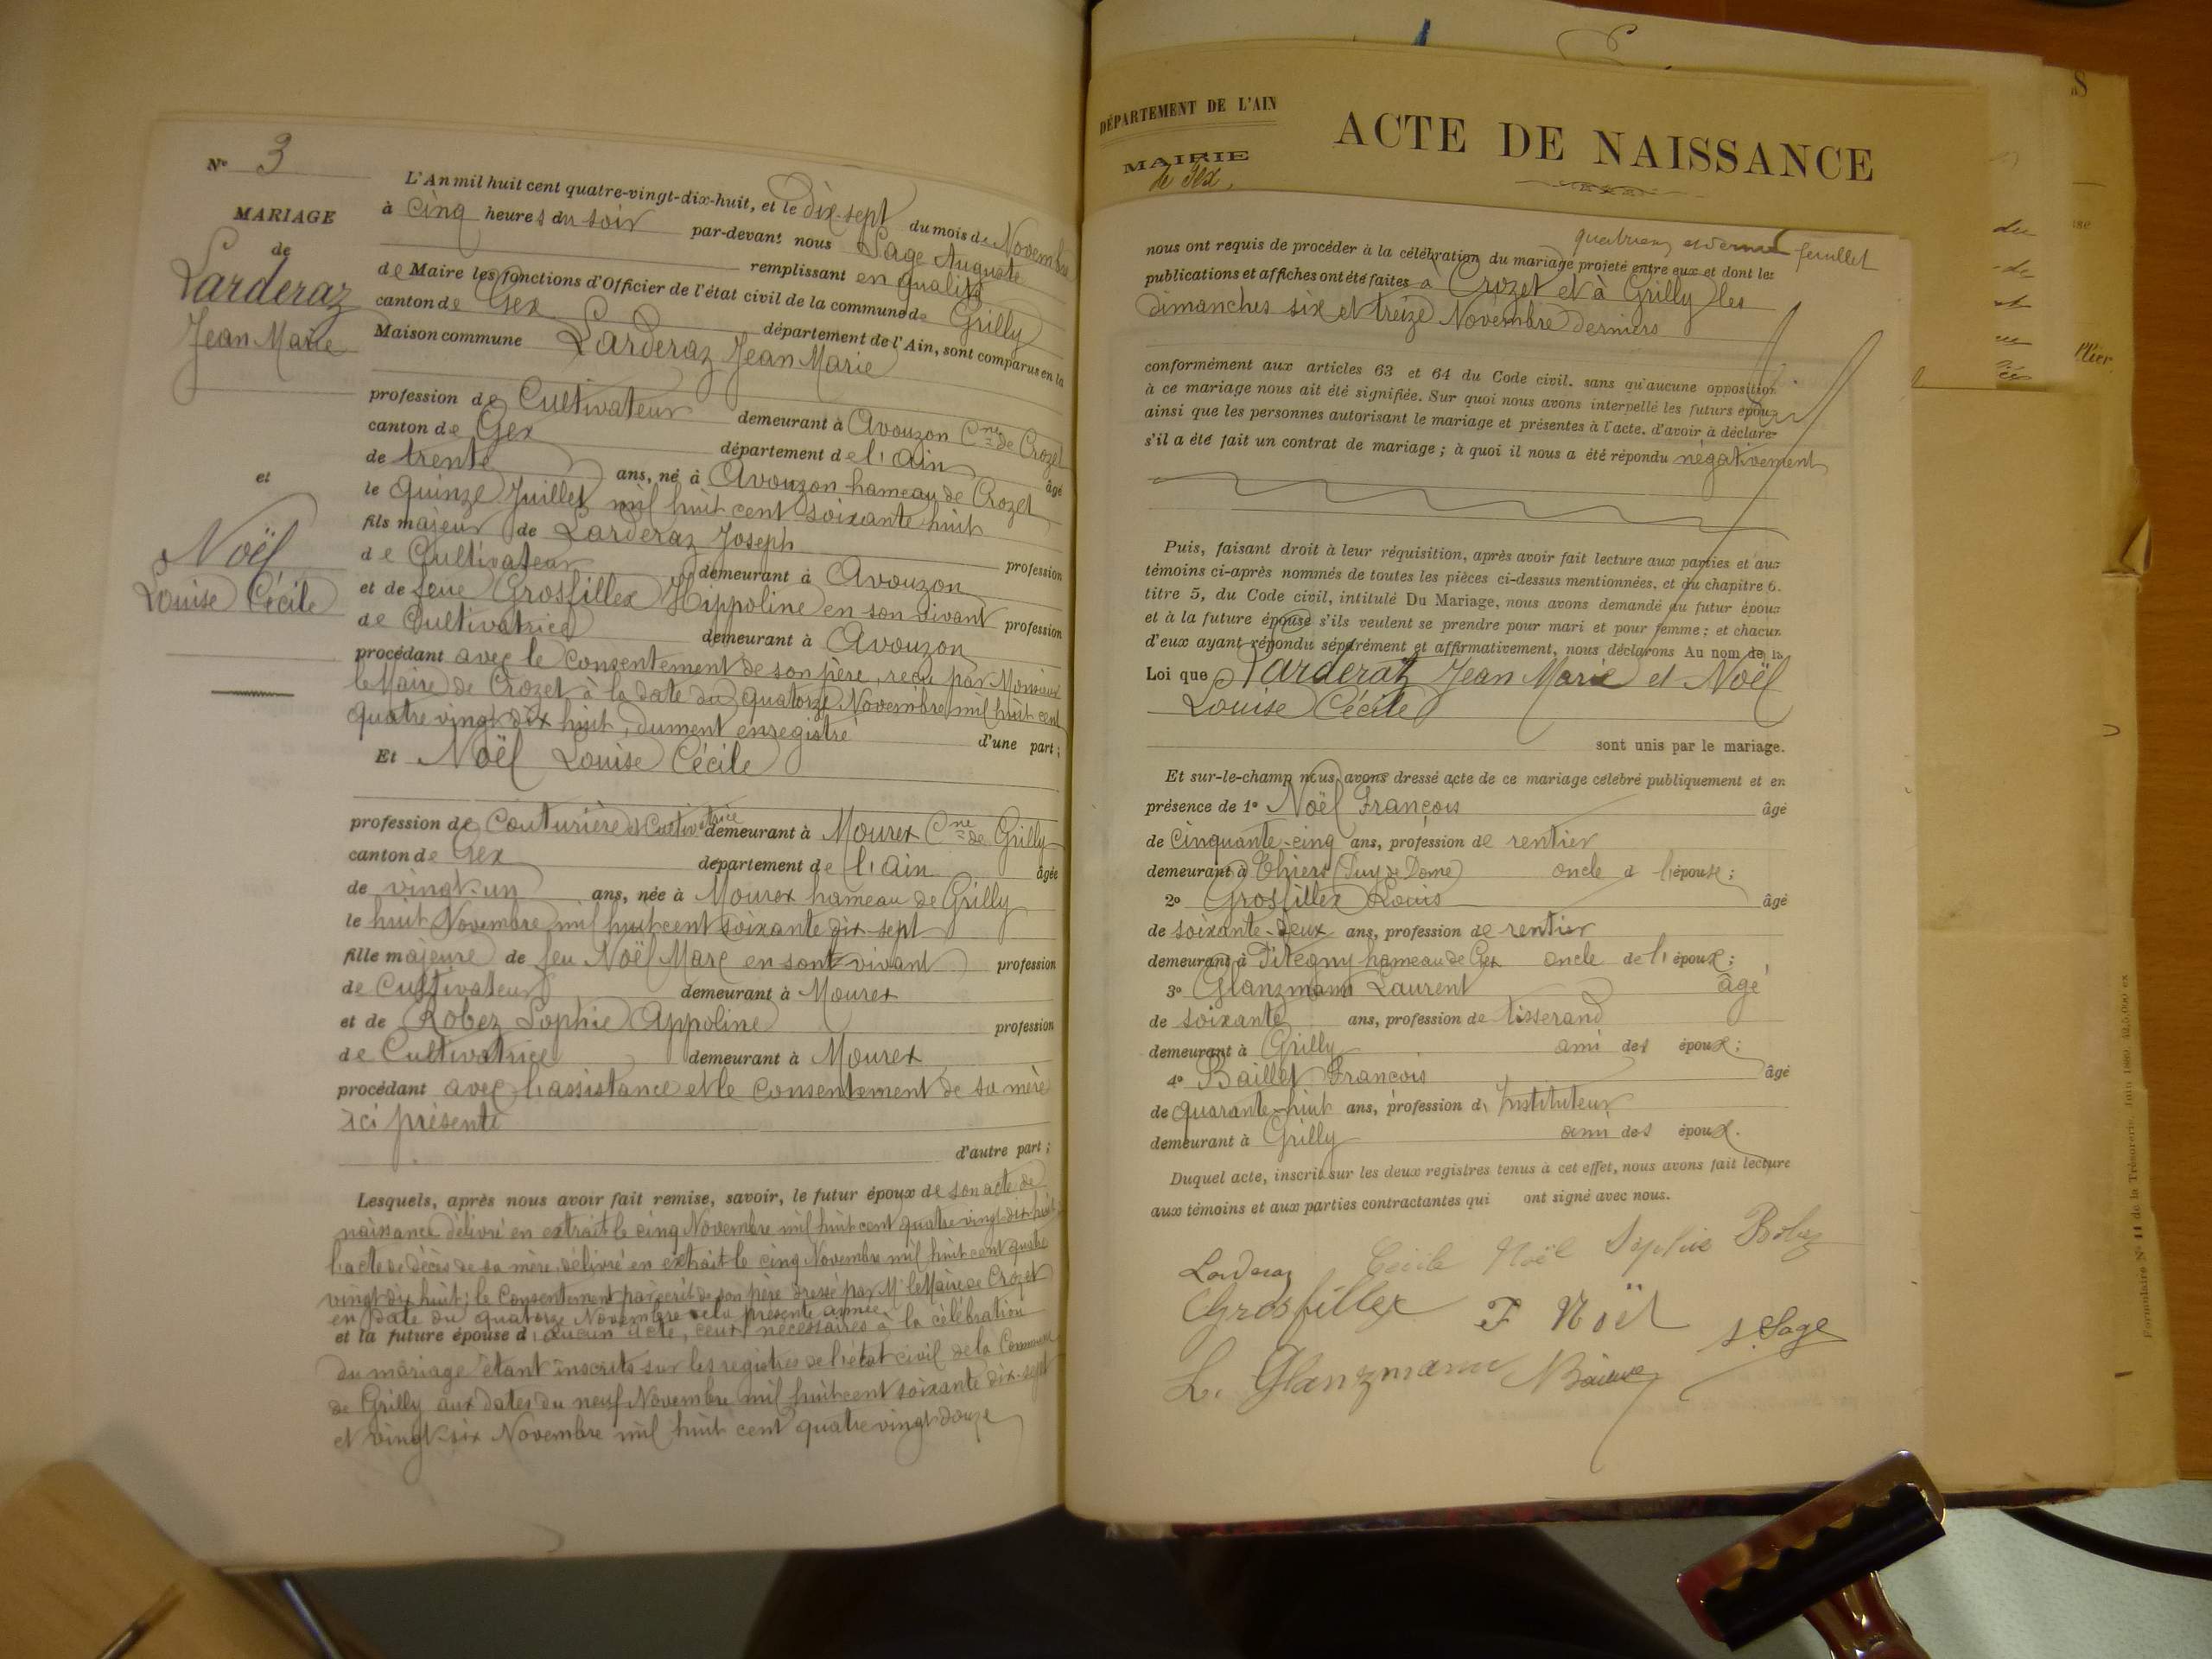 N° 3
MARIAGE
de
Larderaz
Jean Marie
et
Noël
Louise Cécile
L'An mil huit cent quatre-vingt-dix-huit, et le dix-sept du mois de Novembre
à cinq heures du soir par-devant nous Sage Auguste
remplissant en qualité
de Maire les fonctions d'Officier de l'état civil de la commune de Grilly
canton de Gex département de l'Ain, sont comparus en la
Maison commune Larderaz Jean Marie
profession de Cultivateur demeurant à Avouzon Cne de Crozet
canton de Gex département de l'Ain âgé
de trente ans, né à Avouzon hameau de Crozet
le quinze Juillet mil huit cent soixante huit
fils majeur de Larderaz Joseph profession
de Cultivateur demeurant à Avouzon
et de feue Grosfillex Hippoline en son vivant profession
de Cultivatrice demeurant à Avouzon
procédant avec le consentement de son père, reçu par Monsieur
le Maire de Crozet à la date du quatorze Novembre mil huit cent
quatre vingt dix huit, dument enregistré d'une part;
Et Noël Louise Cécile
profession de Couturière et Cultivatrice demeurant à Mourex Cne de Grilly
canton de Gex département de l'Ain âgée
de vingt-un ans, née à Mourex hameau de Grilly
le huit Novembre mil huit cent soixante dix-sept
fille majeure de feu Noël Marc en sont vivant profession
de Cultivateur demeurant à Mourex
et de Robez Sophie Appoline profession
de Cultivatrice demeurant à Mourex
procédant avec l'assistance et le consentement de sa mère
ici présente
d'autre part;
Lesquels, après nous avoir fait remise, savoir, le futur époux de son acte de
naissance délivré en extrait le cinq Novembre mil huit cent quatre vingt dix huit
l'acte de décès de sa mère, délivré en extrait le cinq Novembre mil huit cent quatre
vingt dix huit; le Consentement par écrit de son père dressé par Mr le Maire de Crozet
en date du quatorze Novembre de la présente année,
et la future épouse d'aucun acte, ceux nécessaires à la célébration
du mariage étant inscrits sur les registres de l'état civil de la Commune
de Grilly aux dates du neuf Novembre mil huit cent soixante dix-sept
et vingt-six Novembre mil huit cent quatre vingt douze
DÉPARTEMENT DE L'AIN
MAIRIE
de Gex.
ACTE DE NAISSANCE
quatrième et dernier feuillet
nous ont requis de procéder à la célébration du mariage projeté entre eux et dont les
publications et affiches ont été faites à Crozet et à Grilly les
dimanches six et treize Novembre derniers
conformément aux articles 63 et 64 du Code civil. sans qu'aucune opposition
à ce mariage nous ait été signifiée. Sur quoi nous avons interpellé les futurs époux
ainsi que les personnes autorisant le mariage et présentes à l'acte. d'avoir à déclarer
s'il a été fait un contrat de mariage; à quoi il nous a été répondu négativement
Puis, faisant droit à leur réquisition, après avoir fait lecture aux parties et aux
témoins ci-après nommés de toutes les pièces ci-dessus mentionnées, et du chapitre 6.
titre 5, du Code civil, intitulé Du Mariage, nous avons demandé au futur époux
et à la future épouse s'ils veulent se prendre pour mari et pour femme; et chacun
d'eux ayant répondu séparément et affirmativement, nous déclarons Au nom de la
Loi que Larderaz Jean Marie et Noël
Louise Cécile
sont unis par le mariage.
Et sur-le-champ nous avons dressé acte de ce mariage célébré publiquement et en
présence de 1° Noël François âgé
de cinquante-cinq ans, profession de rentier
demeurant à Thiers (Puy de Dome) oncle d l'épouse;
2° Grosfillex Louis âgé
de soixante-deux ans, profession de rentier
demeurant à Pitegny hameau de Gex oncle de l'époux;
3° Glanzmann Laurent âgé
de soixante ans, profession de tisserand
demeurant à Grilly ami des époux;
4° Baillet François âgé
de quarante-huit ans, profession d'Instituteur
demeurant à Grilly ami des époux.
Duquel acte, inscrit sur les deux registres tenus à cet effet, nous avons fait lecture
aux témoins et aux parties contractantes qui ont signé avec nous.
Larderaz Cécile Noël Sophie Robez
Grosfillex F Noël A Sage
L. Glanzmann